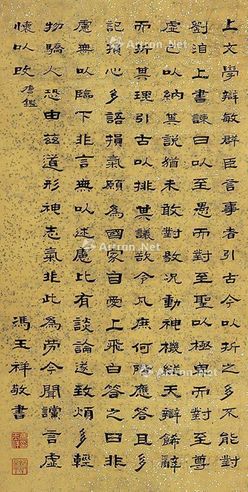 上文學辯敏群臣言事者引古今以折之多不能對
劉洎上書諫曰以至愚而對至聖以極卑而對至尊
虛己以納其說猶未敢對敭況動神機縱天辯飾辭
而折其理引古以排其議欲令凡庶何階應答且多
記損心多語損氣願為國家自愛上飛白答之曰非
慮無以臨下非言無以述慮比有談論遂致煩多輕
物驕人恐由茲道形神志氣非此為勞今聞讜言虛
懷以改 唐鑑
馮玉祥敬書
Artron.Net
Artron.Net